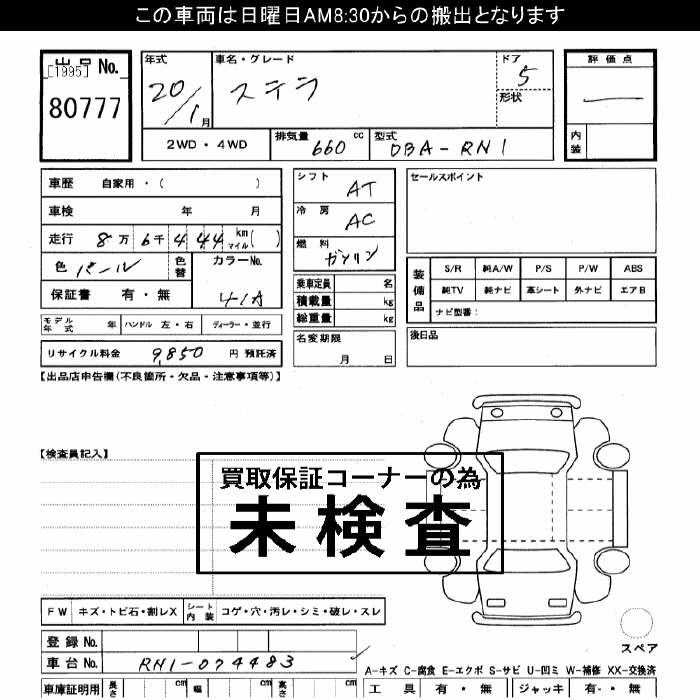 この車両は日曜日AM8:30からの搬出となります
出品 No.
[1995]
80777
年式
20/1月
車名・グレード
ステラ
ドア
5
形状
評価点
内装
2WD・4WD
排気量 660 cc
型式 DBA-RN1
車歴 自家用・( )
車検 年 月
走行 8万 6千 4 44 km マイル ( )
色 パール 色替
カラーNo.
41A
保証書 有・無
モデル年式 年 ハンドル 左・右 ディーラー・並行
リサイクル料金 9,850 円 預託済
シフト AT
冷房 AC
燃料 ガソリン
乗車定員 名
積載量 kg
総重量 kg
名変期限
月 日
セールスポイント
装備品
S/R 純A/W P/S P/W ABS
純TV 純ナビ 革シート 外ナビ エアB
ナビ型番:
後日品
【出品店申告欄(不良箇所・欠品・注意事項等)】
【検査員記入】
買取保証コーナーの為
未検査
FW キズ・トビ石・割レX シート内装 コゲ・穴・汚レ・シミ・破レ・スレ
登録No.
車台No. RN1-074483
スペア
A-キズ C-腐食 E-エクボ S-サビ U-凹ミ W-補修 XX-交換済
車庫証明用 長さ cm 幅 cm 高さ cm
工具 有・無 ジャッキ 有・無